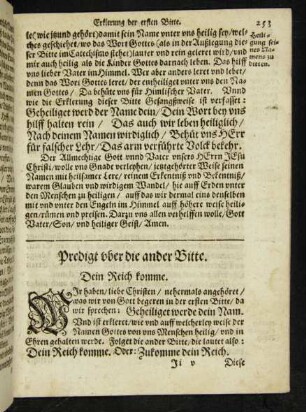 Erklerung der ersten Bitte. 253
te/ wie jtzund gehört) damit sein Name unter uns heilig sey/ wel-
ches geschiehet/ wo das Wort Gottes (als in der Außlegung die-
ser Bitte im Catechismo stehet) lauter vnd rein geleret wird/ vnd
wir auch heilig als die Kinder Gottes darnach leben. Das hilff
vns lieber Vater im Himmel. Wer aber anders leret und lebet/
denn das Wort Gottes leret/ der entheiliget vnter vns den Na-
men Gottes/ Da behüte vns für Himlischer Vater. Vnnd
wie die Erklerung dieser Bitte Gesangsweise ist verfasset:
Geheiliget werd der Name dein/ Dein Wort bey vns
hilff halten rein/ Das auch wir leben heiliglich/
Nach deinem Namen wirdiglich/ Behüt vns HErr
für falscher Lehr/ Das arm verführte Volck bekehr.
Der Allmechtige Gott vnnd Vater vnsers HErrn JEsu
Christi/ wolle vns Gnade verleyhen/ jetzgehörter Weise seinen
Namen mit heilsamer Lere/ reinem Erkenntniß vnd Bekentniß/
warem Glauben vnd wirdigem Wandel/ hie auff Erden vnter
den Menschen zu heiligen/ auff das wir dermal eins denselben
mit vnd vnter den Engeln im Himmel auff höhere weise heili-
gen/ rümen vnd preisen. Darzu vns allen verhelffen wolle/ Gott
Vater/ Son/ vnd heiliger Geist/ Amen.
Heili-
gung
seines Na-
mens zu
bitten.
Predigt vber die ander Bitte.
Dein Reich komme.
Wir haben/ liebe Christen/ nehermals angehöret/
was wir von Gott begeren in der ersten Bitte/ da
wir sprechen: Geheiliget werde dein Nam.
Vnd ist erkleret/ wie vnd auff welcherley weise der
Namen Gottes von vns Menschen heilig/ vnd in
Ehren gehalten werde. Folget die ander Bitte/ die lautet also:
Dein Reich komme. Oder: Zukomme dein Reich.
Ji v Diese